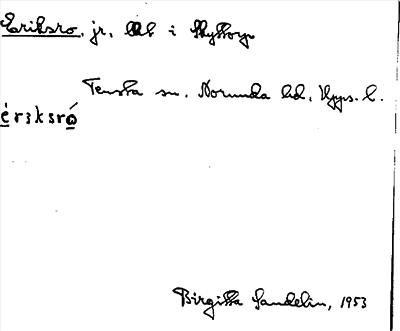 Eriksro, jr. Ål i Skyttorp
Tensta sn. Norunda hd. Upps. l.
érıksrò̱
Birgitta Sandelin, 1953